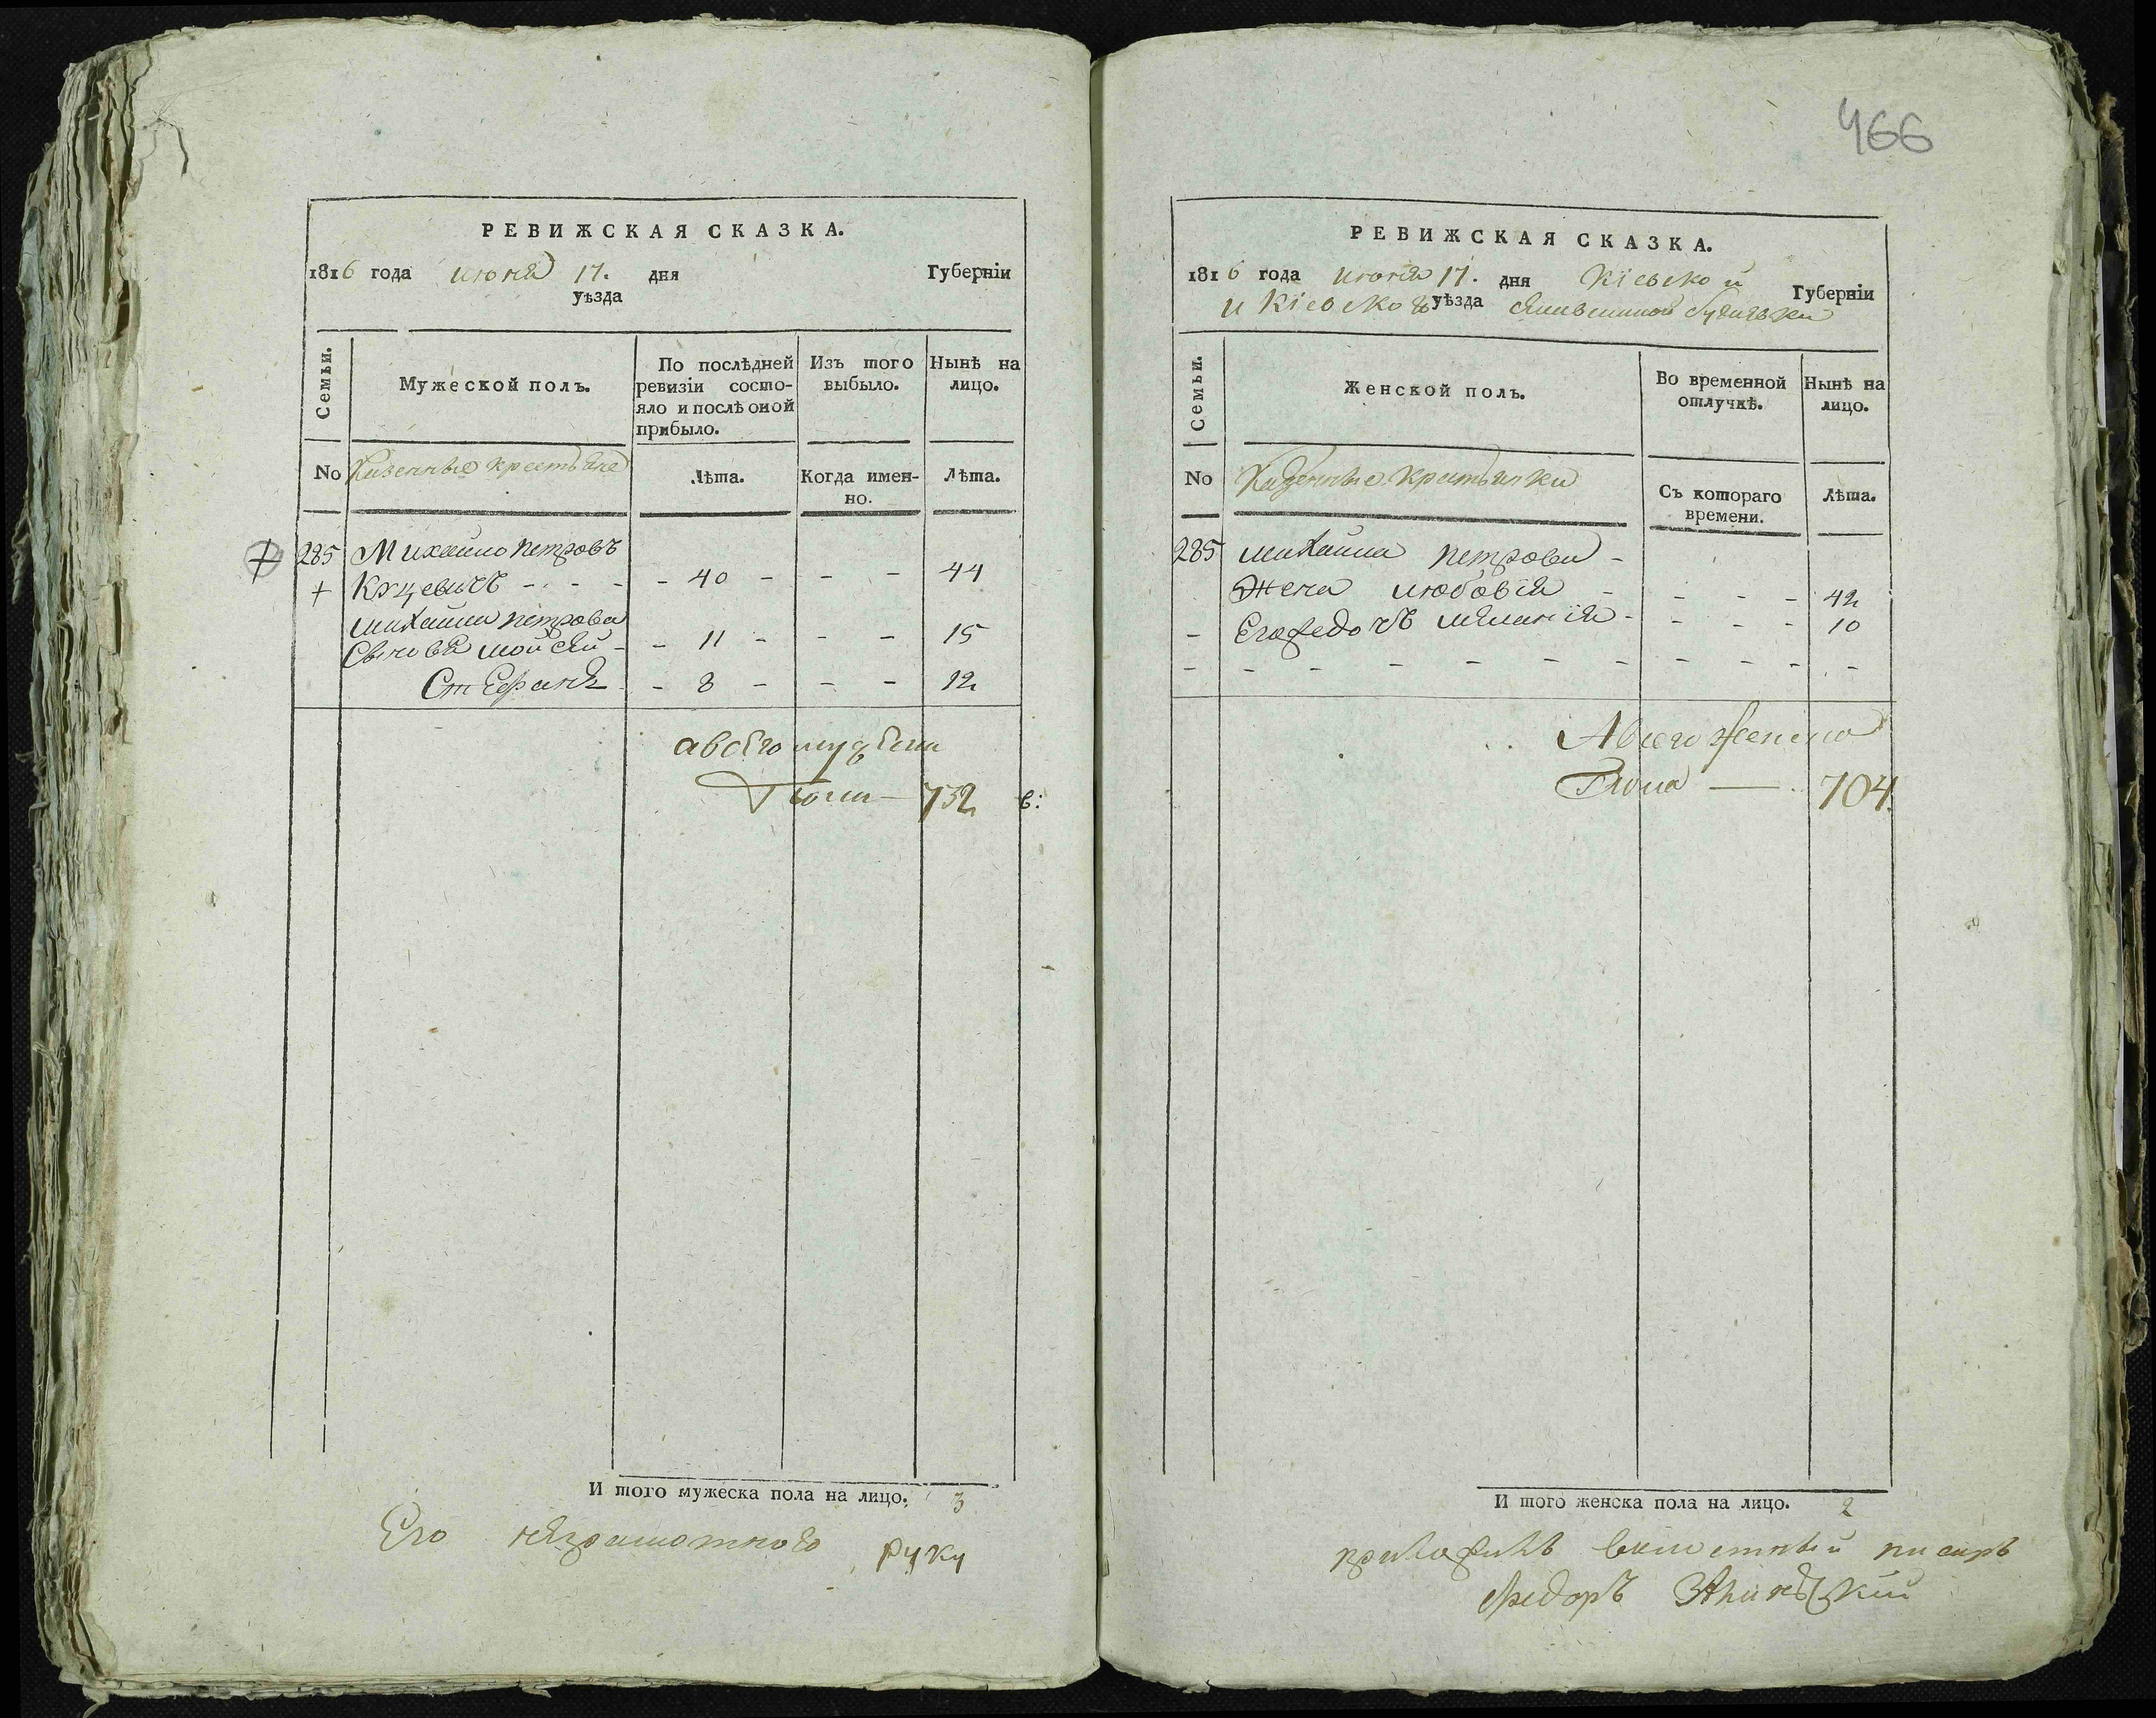 466
РЕВИЖСКАЯ СКАЗКА.
1816 года июня 17. дня Губерніи
уѣзда
Семьи.
Мужеской полъ.
По послѣдней ревизіи состо-
яло и послѣ оной
прибыло.
Изъ того
выбыло.
Нынѣ на
лицо.
No Казенные крестьяне
Лѣта.
Когда имен-
но.
Лѣта.
285 Михайло Петровъ
Куцевичъ - - - - 40 - - - 44
Михайла Петрова
Сыновья Мойсей - - 11 - - - 15
Стефанъ - - 8 - - - 12
авсего мужеска
Пола — 732
в:
И того мужеска пола на лицо. 3
Его неграмотного руку
РЕВИЖСКАЯ СКАЗКА.
1816 года июня 17. дня Кіевской Губерніи
и Кіевского уѣзда
Семьи.
Женской полъ.
Во временной
отлучкѣ.
Нынѣ на
лицо.
No Казенные крестьянки
Съ котораго
времени.
Лѣта.
285 Михайла Петрова -
Жена - - - - 42
- Его - - - - 10
- - - - - - - - - - -
Авсего женска
Пола — 704.
И того женска пола на лицо. 2
писарь
Федоръ